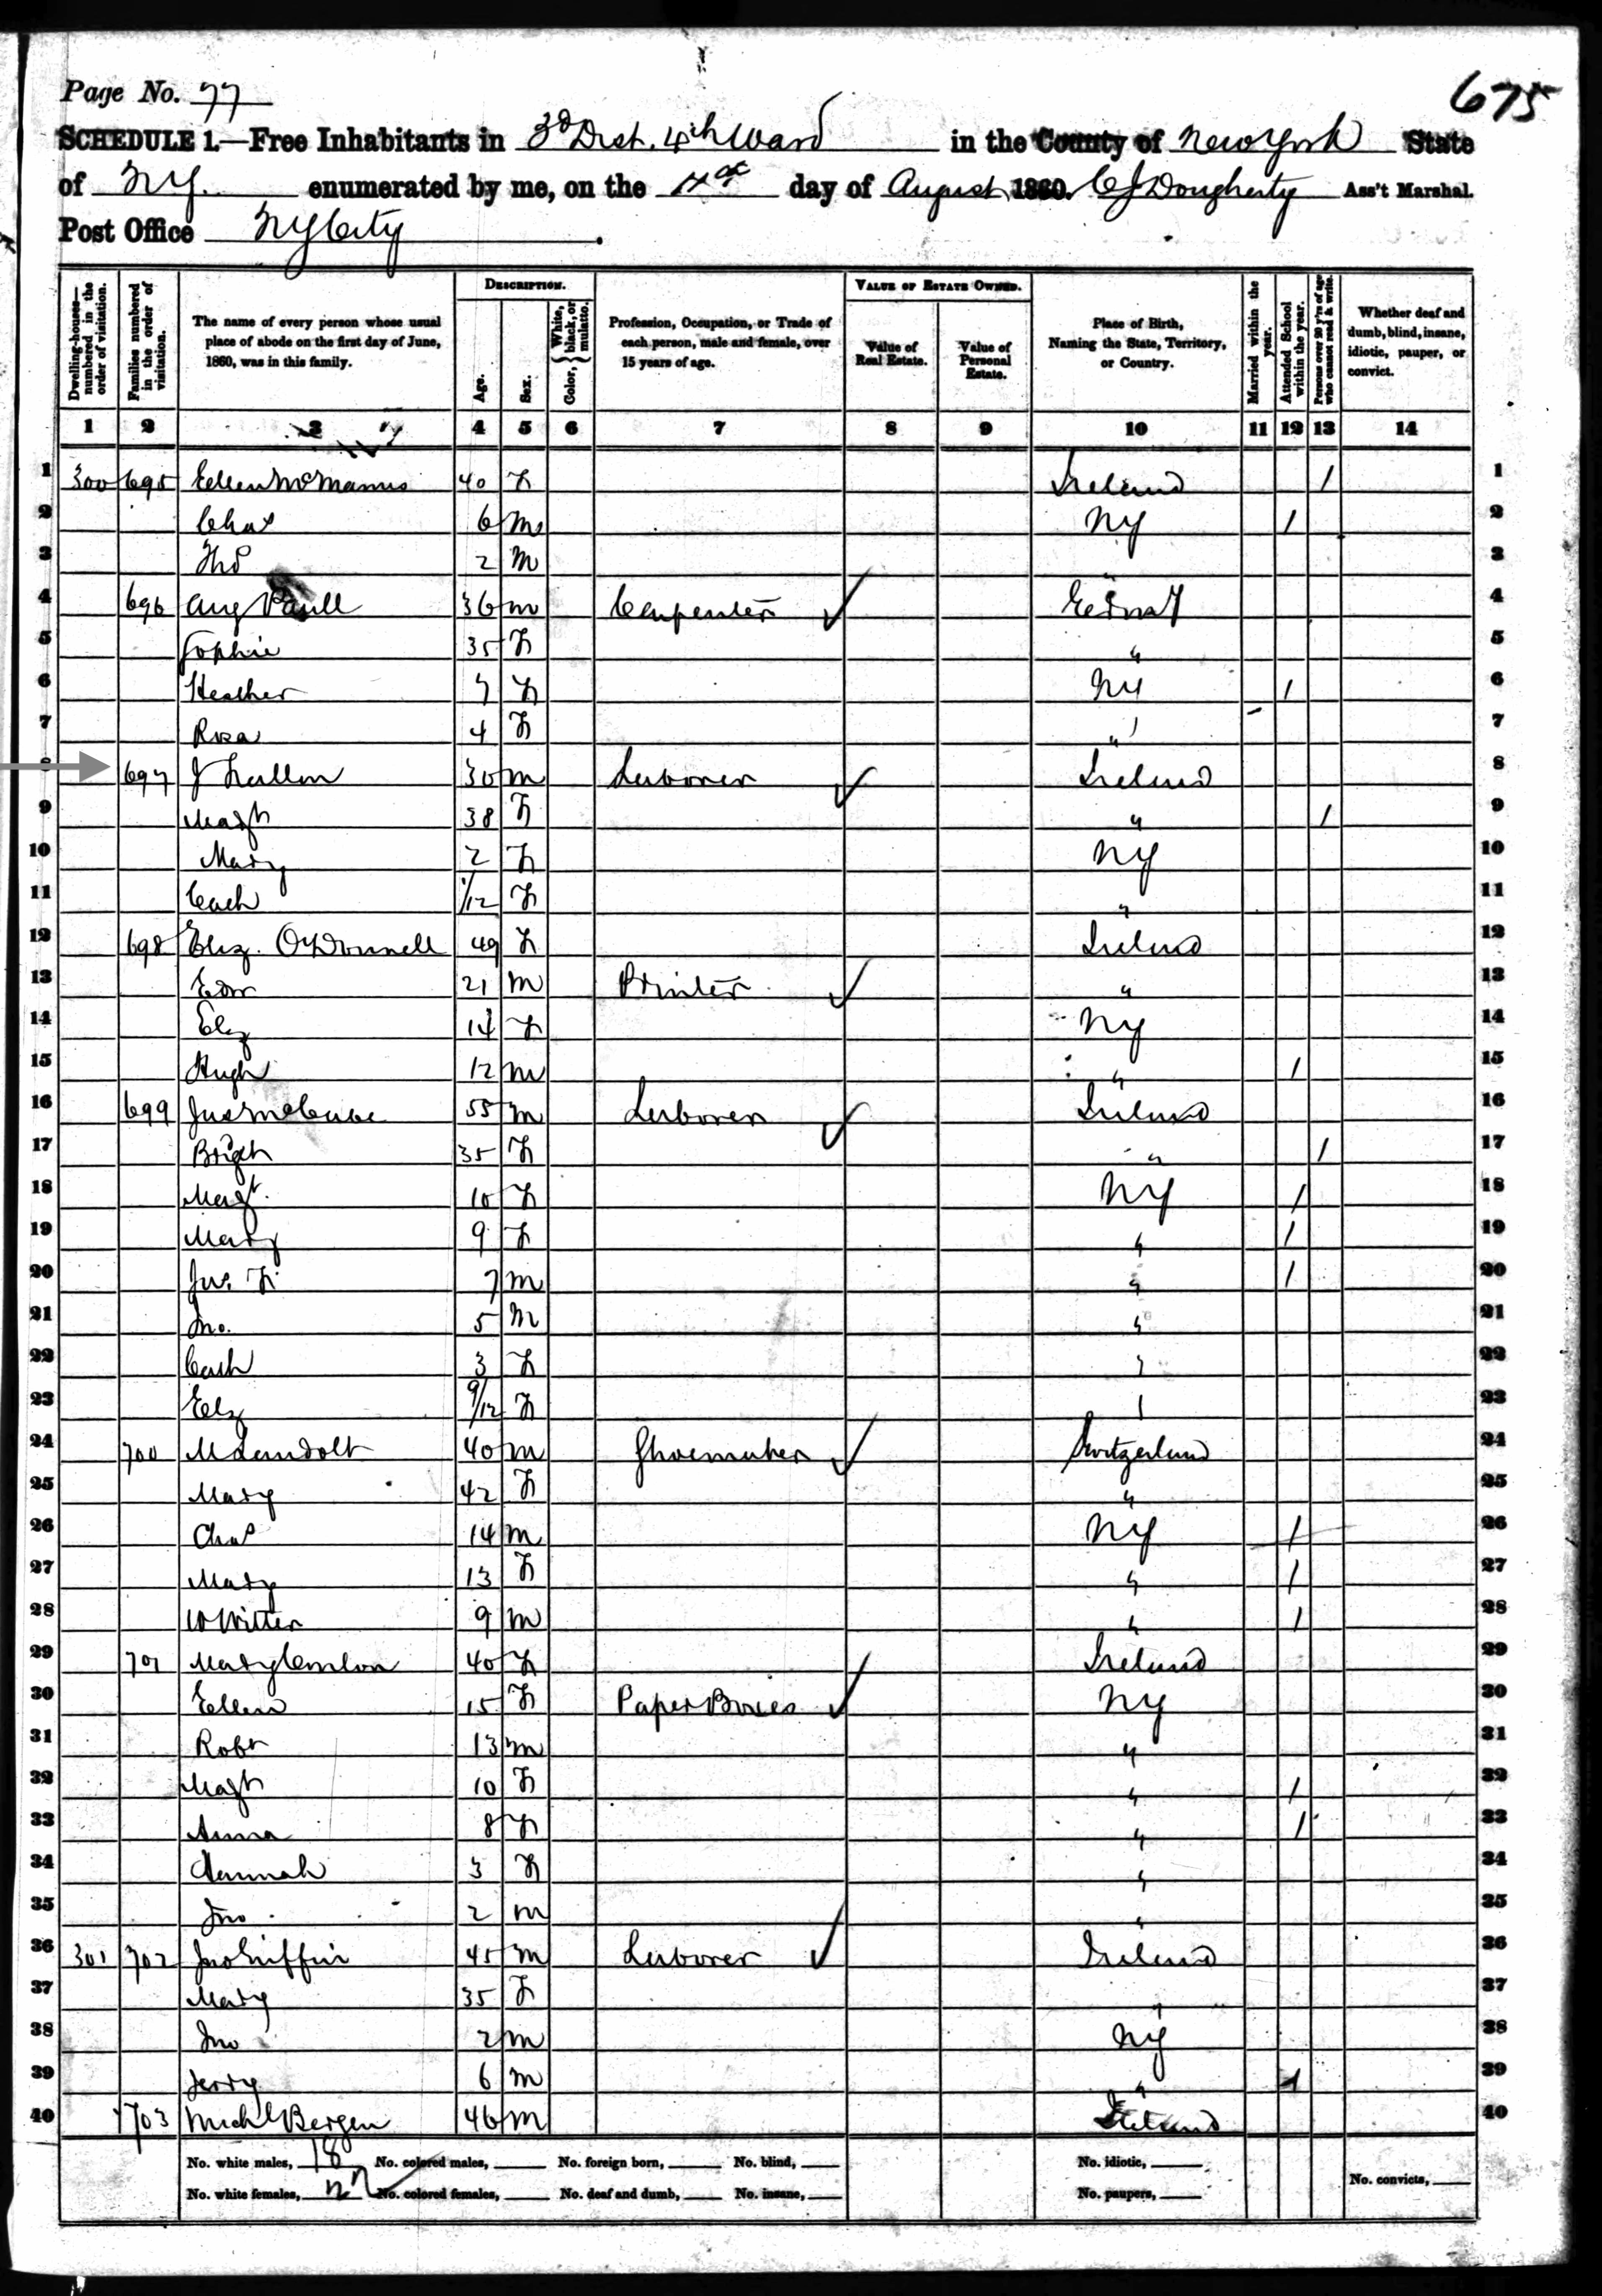 Page No. 77
675
SCHEDULE 1.—Free Inhabitants in 3d Dist. 4th Ward in the County of New York State
of N.Y. enumerated by me, on the day of August 1860. C J Dougherty Ass't Marshal.
Post Office N Y City
DESCRIPTION.
VALUE OF ESTATE OWNED.
Dwelling-houses—numbered in the order of visitation.
Families numbered in the order of visitation.
The name of every person whose usual place of abode on the first day of June, 1860, was in this family.
Age.
Sex.
Color, { White, black, or mulatto.
Profession, Occupation, or Trade of each person, male and female, over 15 years of age.
Value of Real Estate.
Value of Personal Estate.
Place of Birth, Naming the State, Territory, or Country.
Married within the year.
Attended School within the year.
Persons over 20 y'rs of age who cannot read & write.
Whether deaf and dumb, blind, insane, idiotic, pauper, or convict.
1 2 3 4 5 6 7 8 9 10 11 12 13 14
1 300 695 Ellen McManus 40 F Ireland / 1
2 Chas 6 M NY / 2
3 Thos 2 M " 3
4 696 Aug Paull 36 M Carpenter ✓ 4
5 Sophie 35 F " 5
6 Heather 7 F NY / 6
7 Rosa 4 F " 7
8 697 J 30 M Laborer ✓ Ireland 8
9 Magt 38 F " / 9
10 Mary 2 F NY 10
11 Cath 1/12 F " 11
12 698 Eliz. O'Donnell 49 F Ireland 12
13 Edw 21 M Printer ✓ " 13
14 Eliz 14 F NY 14
15 Hugh 12 M " / 15
16 699 Jas McCabe 55 M Laborer ✓ Ireland 16
17 Bridgt 35 F " / 17
18 Magt. 10 F NY / 18
19 Mary 9 F " / 19
20 Jas. F. 7 M " / 20
21 Jno. 5 M " 21
22 Cath 3 F " 22
23 Eliz 9/12 F " 23
24 700 M Landolt 40 M Shoemaker ✓ Switzerland 24
25 Mary 42 F " 25
26 Chas 14 M NY / 26
27 Mary 13 F " / 27
28 W Witter 9 M " / 28
29 701 Mary Conlon 40 F Ireland 29
30 Ellen 15 F Paper Boxes ✓ NY 30
31 Robt 13 M " 31
32 Magt 10 F " / 32
33 Anna 8 F " / 33
34 Hannah 3 F " 34
35 Jno. 2 M " 35
36 301 702 Jno Griffin 45 M Laborer ✓ Ireland 36
37 Mary 35 F " 37
38 Jno 2 M NY 38
39 Jerry 6 M " / 39
40 703 Michl Bergen 46 M Ireland 40
No. white males, 18 No. colored males, No. foreign born, No. blind, No. idiotic,
No. white females, 22 No. colored females, No. deaf and dumb, No. insane, No. paupers, No. convicts,